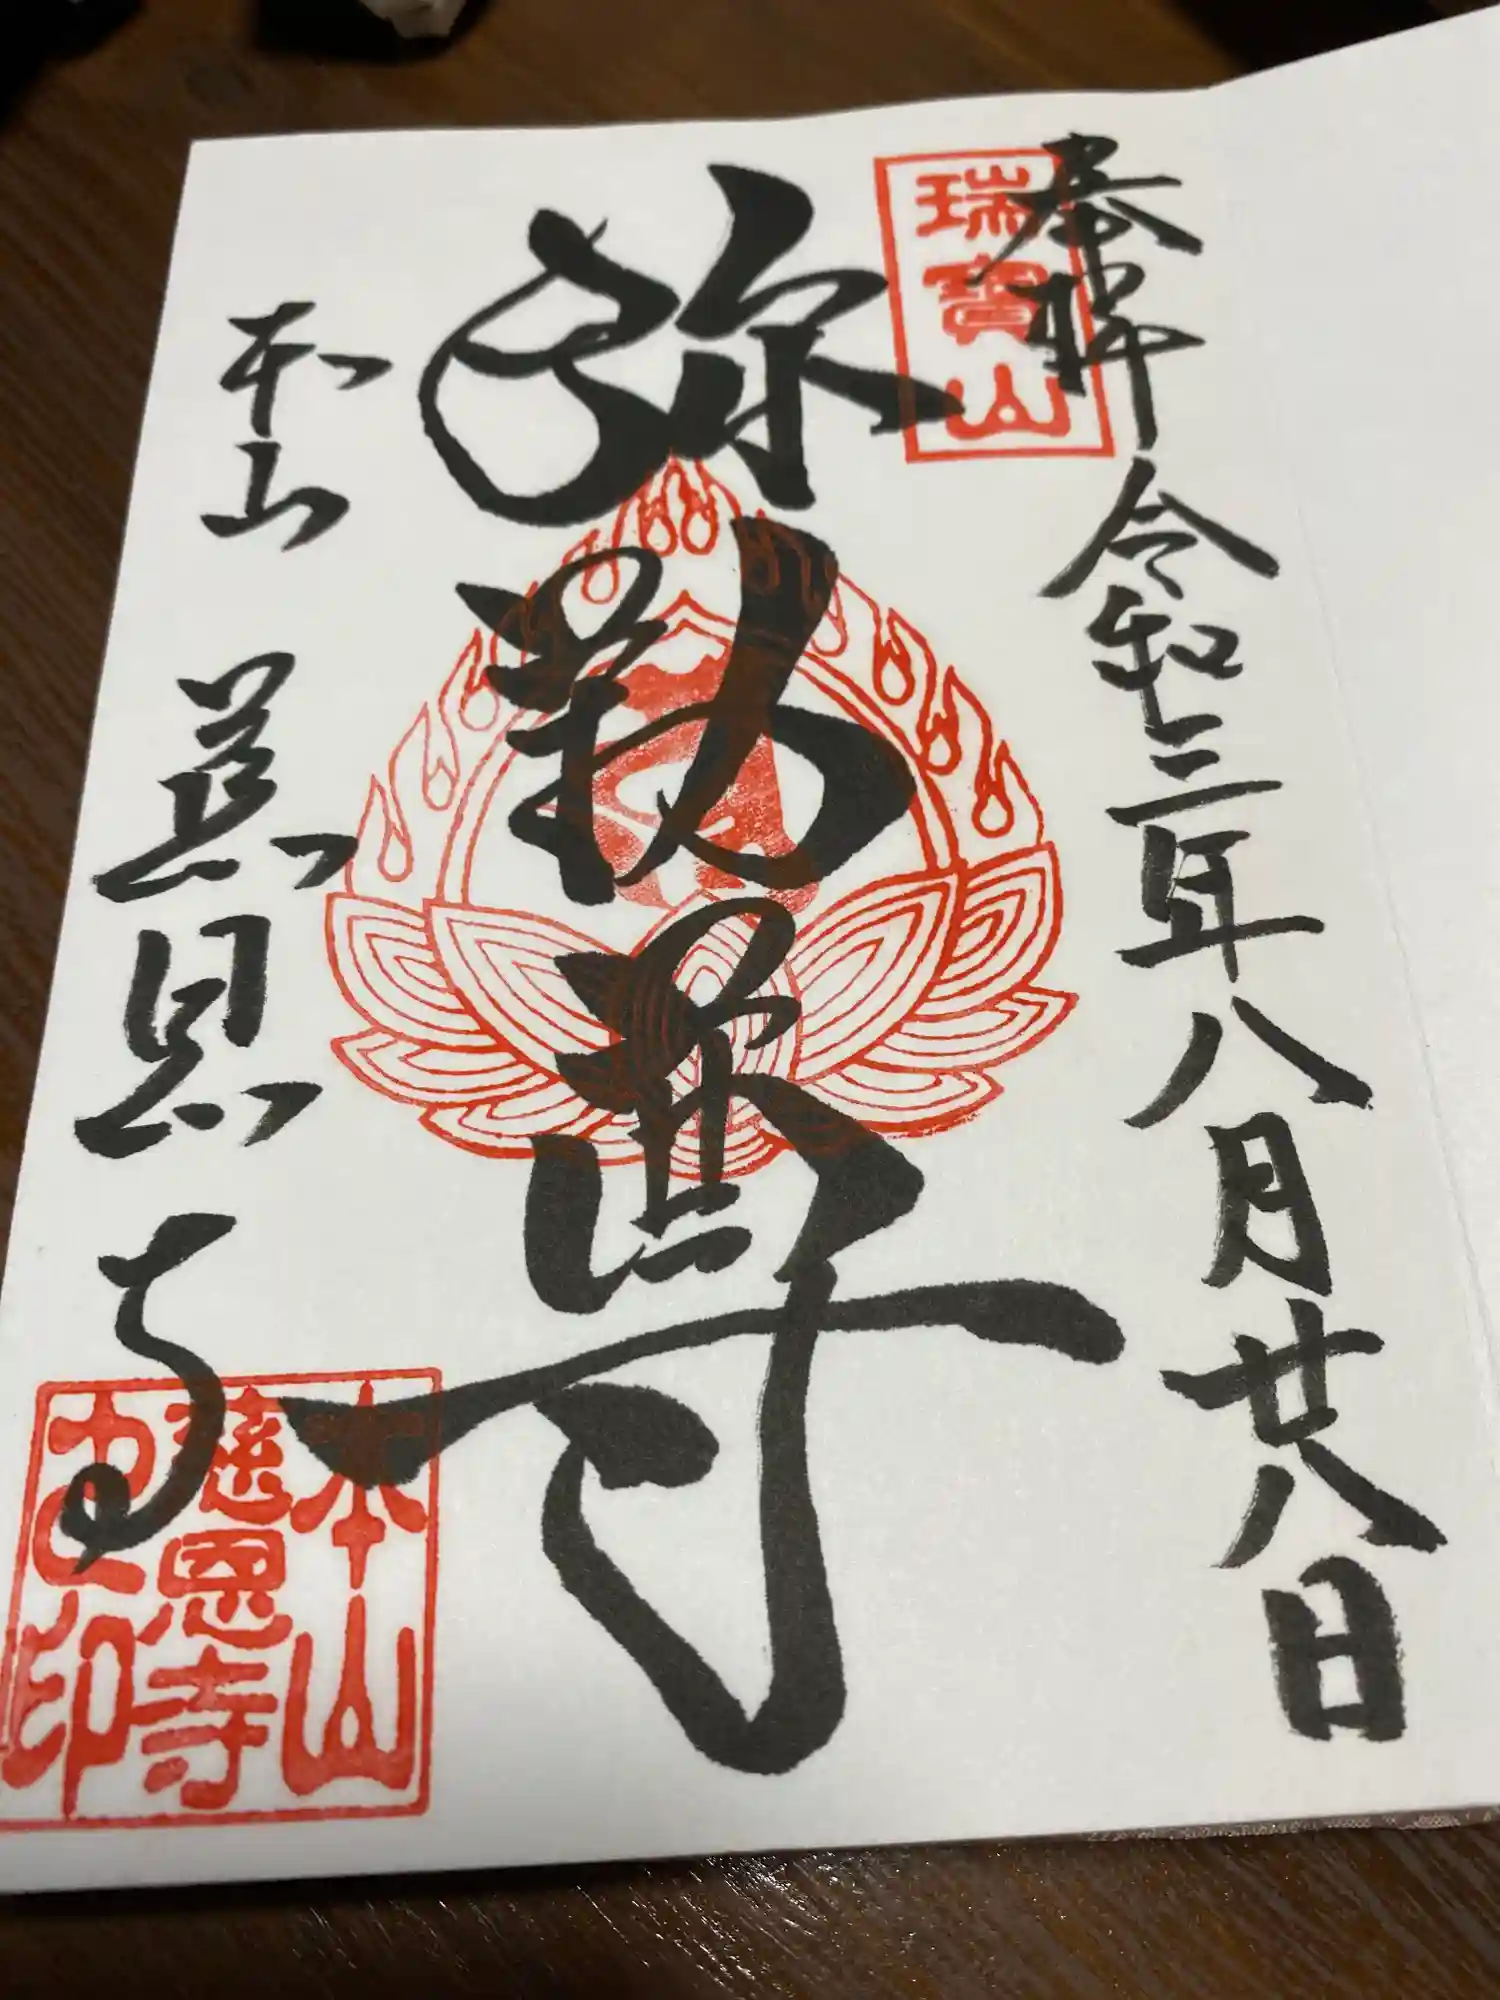 奉拝 令和三年八月廿八日
瑞寶山
弥勒尊
本山 慈恩寺
本山
慈恩寺
之印